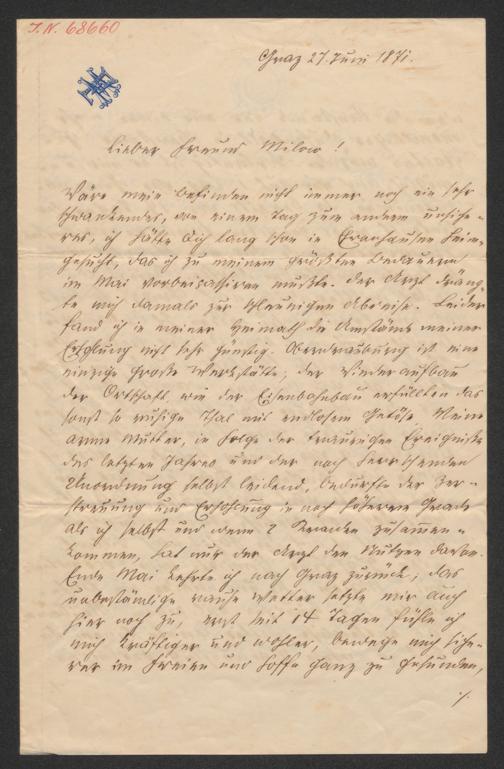 I.N. 68660
Graz 27. Juni 1871.
Lieber Freund Milow!
Wäre mein Befinden nicht immer noch ein sehr
schwankendes, von einem Tag zum andern unsiche-
res, ich hätte Dich lang schon in Ehrenhausen heim-
gesucht, das ich zu meinem größten Bedauern
im Mai vorbeipassieren mußte. Der Arzt dräng-
te mich damals zur schleunigen Abreise. Leider
fand ich in meiner Heimath die Umstände meiner
Erholung nicht sehr günstig. Oberdrauburg ist eine
einzige große Werkstätte; der Wiederaufbau
der Ortschaft wie der Eisenbahnbau erfüllten das
sonst so ruhige Thal mit endlosem Getöse. Meine
arme Mutter, in Folge der traurigen Ereignisse
des letzten Jahres und der noch herrschenden
Unordnung selbst leidend, bedurfte der Zer-
streuung und Erholung in noch höherem Grade
als ich selbst und wenn 2 Kranke zusammen-
kommen, hat nur der Arzt den Nutzen davon.
Ende Mai kehrte ich nach Graz zurück; das
unbeständige rauhe Wetter setzte mir auch
hier noch zu, erst seit 14 Tagen fühle ich
mich kräftiger und wohler, bewege mich siche-
rer im Freien und hoffe ganz zu gesunden,
./.